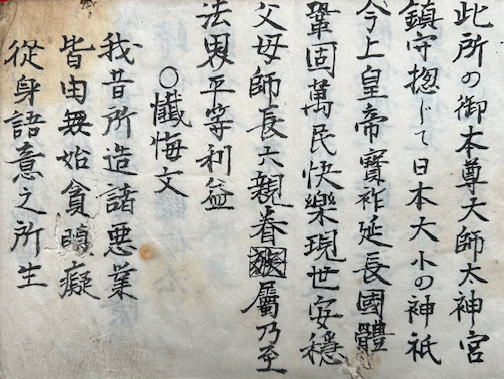 此所の御本尊大師太神宮
鎮守揔じて日本大小の神祇
今上皇帝寳祚延長國體
鞏固萬民快樂現世安穩
父母師長六親眷屬乃至
法界平等利益
○懺悔文
我昔所造諸悪業
皆由無始貪瞋癡
從身語意之所生